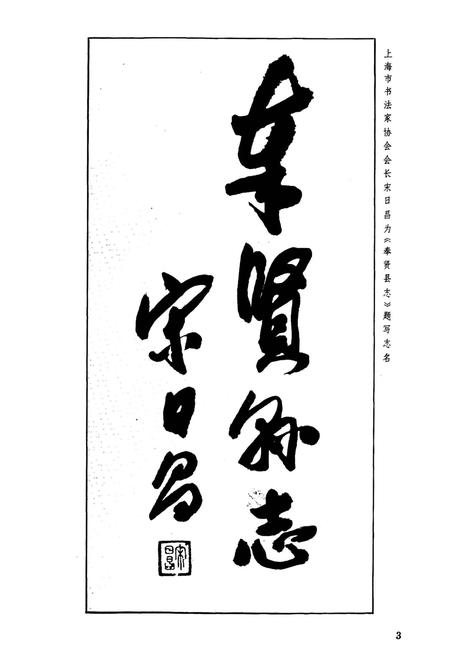 上海市书法家协会会长宋日昌为《奉贤县志》题写志名
奉贤县志
宋日昌
宋日昌
3